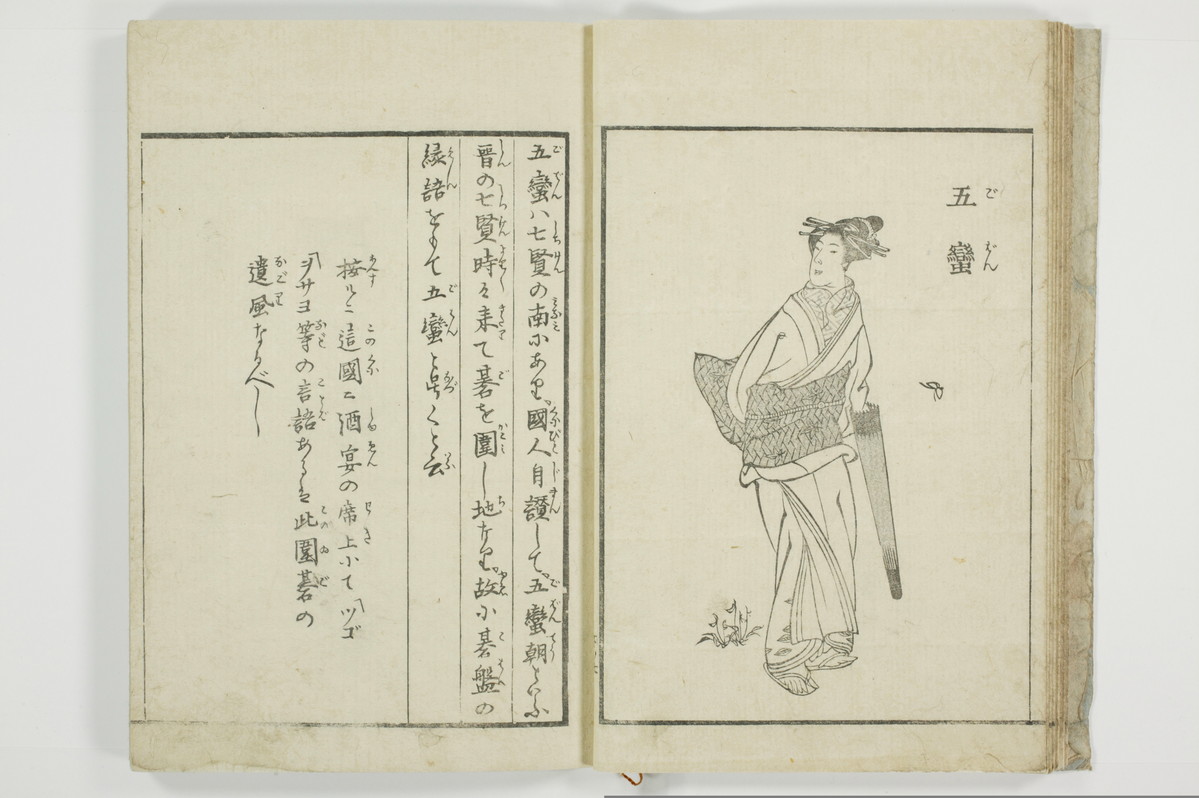 五蠻
五蠻ハ七賢の南にあり國人自讃して五蠻朝といふ
晋の七賢時々来て碁を圍し地なり故に碁盤の
縁語をもて五蠻と号くと云
按るに這國に酒宴の席上にてツゴ
ヲサヨ等の言語あるは此圍碁の
遺風なるべし